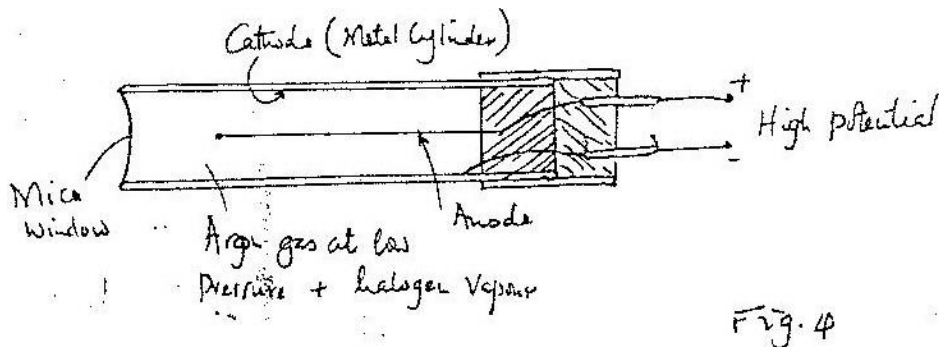 Cathode (Metal Cylinder)
+
High potential
-
Mica
Window
Anode
Argon gas at low
Pressure + halogen Vapour
Fig. 4